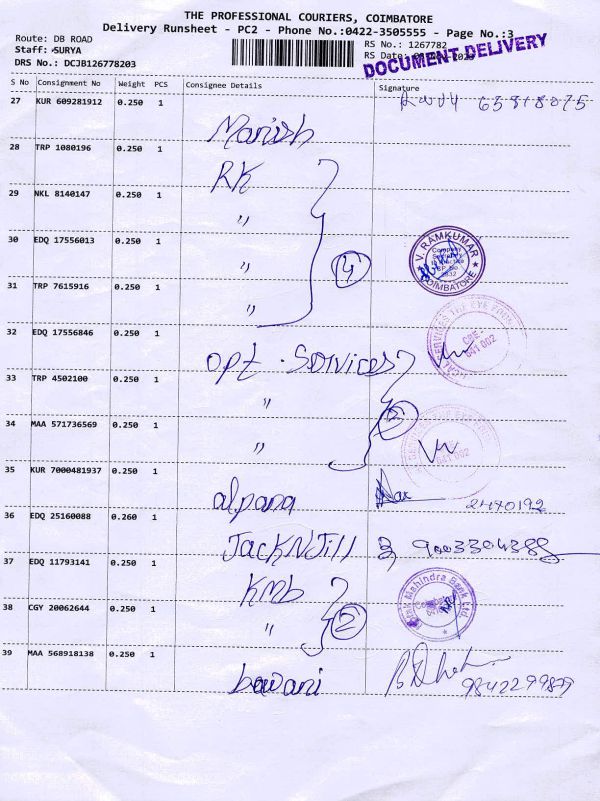 THE PROFESSIONAL COURIERS, COIMBATORE
Delivery Runsheet - PC2 - Phone No.:0422-3505555 - Page No.:3
Route: DB ROAD
Staff: SURYA
DRS No.: DCJB126778203
RS No.: 1267782
RS Date:
DOCUMENT DELIVERY
S No Consignment No Weight PCS Consignee Details Signature
27 KUR 609281912 0.250 1
Manish
28 TRP 1080196 0.250 1
RK
29 NKL 8140147 0.250 1
"
30 EDQ 17556013 0.250 1
" 4
V. RAMKUMAR
Company
Secretary
COIMBATORE
31 TRP 7615916 0.250 1
"
32 EDQ 17556846 0.250 1
opt. Services
641 002
33 TRP 4502100 0.250 1
"
34 MAA 571736569 0.250 1
"
641 002
35 KUR 7000481937 0.250 1
alpana
2470192
36 EDQ 25160088 0.260 1
Jack N Jill 9003304388
37 EDQ 11793141 0.250 1
KMb
Kotak Mahindra Bank Ltd.
38 CGY 20062644 0.250 1
" 2
39 MAA 568918138 0.250 1
bavani
9842299879